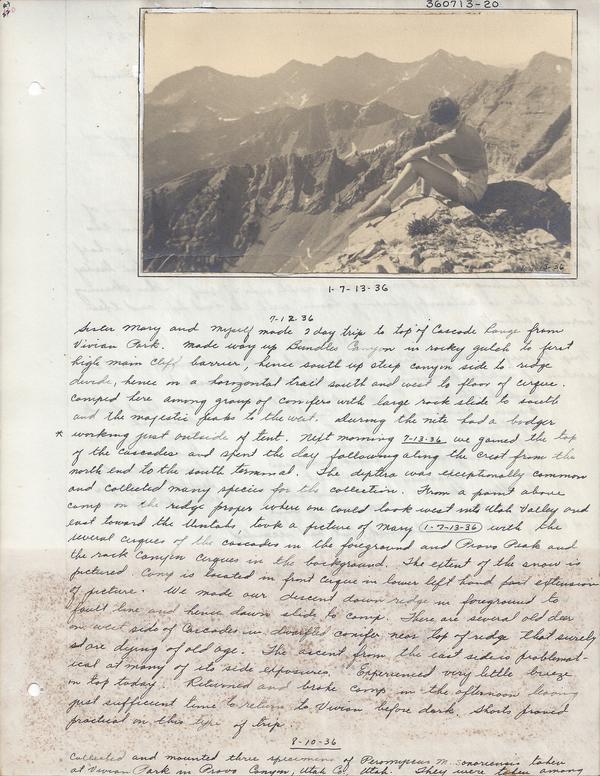 360713-20
1-7-13-36
7-12 36
Sister Mary and myself made 2 day trip to top of Cascade Range from
Vivian Park. Made way up Bundles Canyon in rocky gulch to first
high main cliff barrier, hence south up steep canyon side to ridge
divide, hence on a horizontal trail south and west to floor of cirque.
Camped here among group of conifers with large rock slide to south
and the majestic peaks to the west. During the nite had a badger
* working just outside of tent. Next morning 7-13-36 we gained the top
of the Cascades and spent the day following along the crest from the
north end to the south terminal. The diptera was exceptionally common
and collected many species for the collection. From a point above
camp on the ridge proper where one could look west into Utah Valley and
east toward the Uintahs, took a picture of Mary (1-7-13-36) with the
several cirques of the Cascades in the foreground and Provo Peak and
the rock canyon cirques in the background. The extent of the snow is
pictured. Camp is located in front cirque in lower left hand part extension
of picture. We made our descent down ridge in foreground to
fault line and hence down slide to camp. There are several old deer
on west side of Cascades in dwarfed conifer near top of ridge that surely
are dying of old age. The ascent from the east side is problemat-
ical at many of its side exposures. Experienced very little breeze
on top today. Returned and broke camp in the afternoon leaving
just sufficient time to return to Vivian before dark. Shorts proved
practical on this type of trip.
8-10-36
Collected and mounted three specimens of Peromyscus M. sonoriensis taken
at Vivian Park in Provo Canyon, Utah Co, Utah. They were taken among